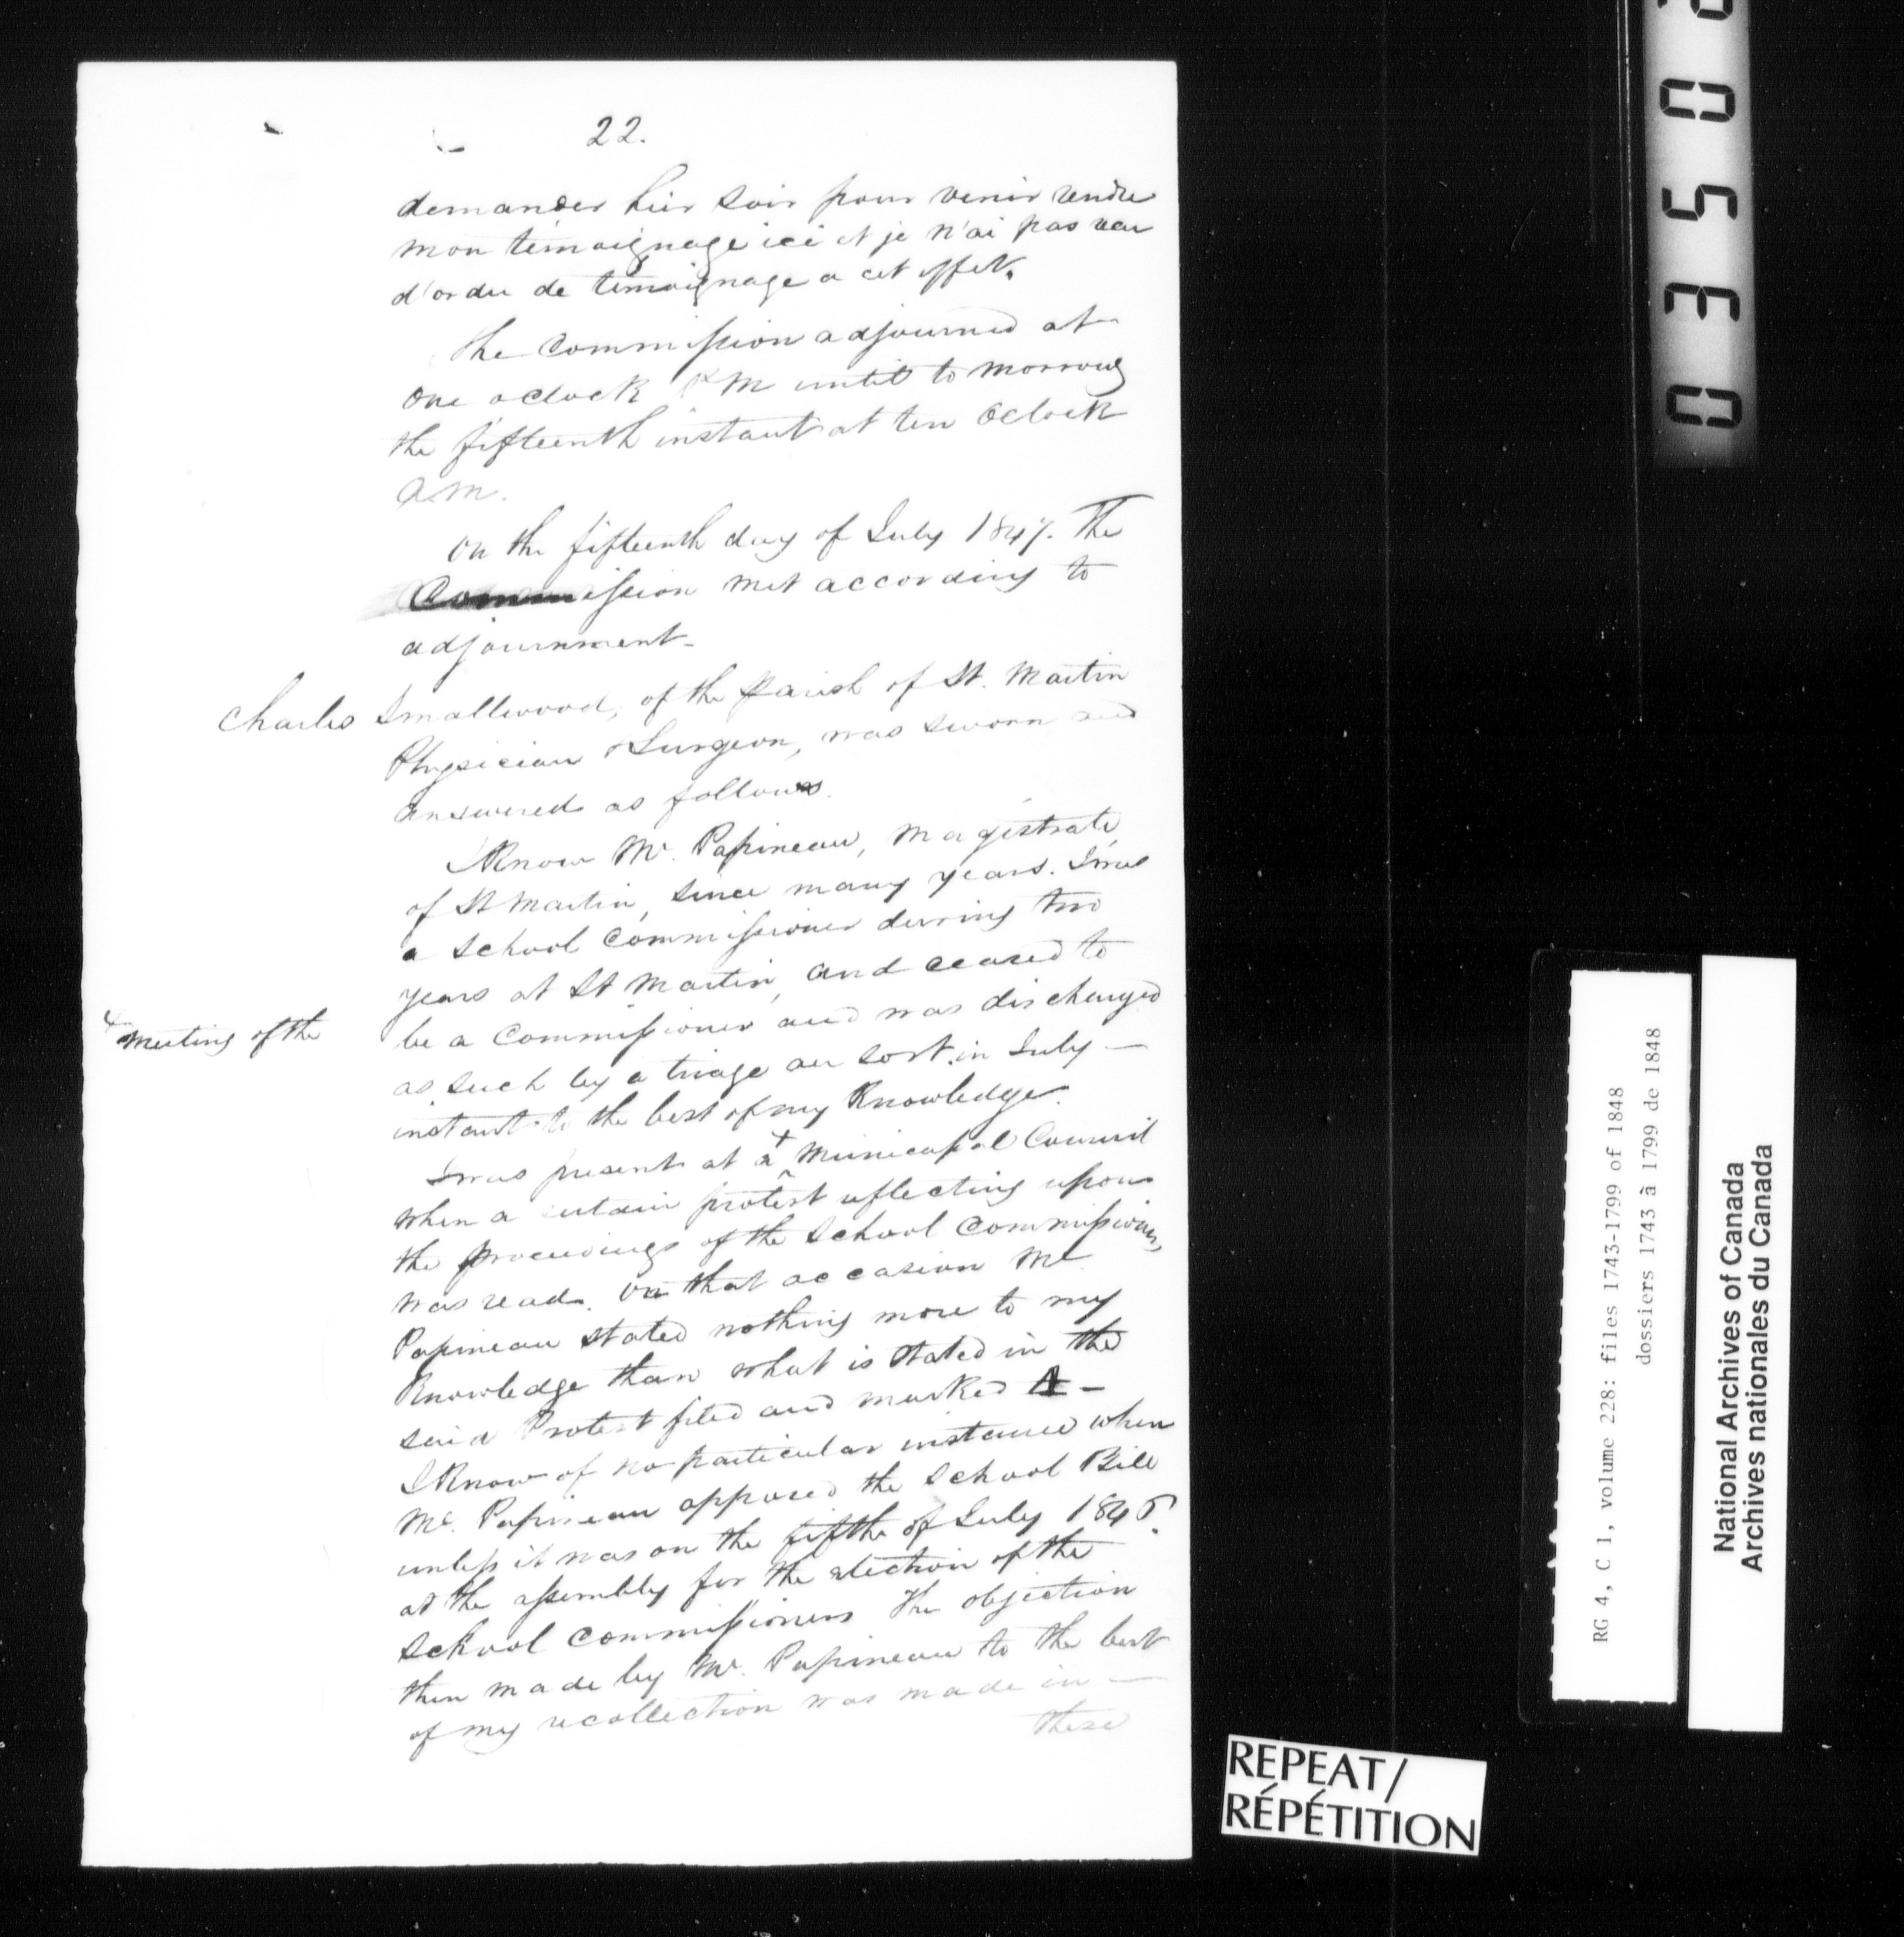 22.
demander hier soir pour venir rendre
mon témoignage ici et je n'ai pas
d'ordre de témoignage a cet effet.
The Commission adjourned at
one oclock PM until to morrow
the fifteenth instant at ten Oclock
am.
On the fifteenth day of July 1847. The
Commission met according to
adjournment-
Charles Smallwood, of the Parish of St. Martin
Physician & Surgeon, was sworn and
answered as follows.
I Know Mr. Papineau, magistrate
of St Martin, since many years. I was
a school Commissioner during two
years at St Martin, and ceased to
be a Commissioner and was discharged
as such by a tirage au sort in July —
instant to the best of my Knowledge.
+ meeting of the
I was present at a + Municipal Council
when a certain protest reflecting upon
the proceedings of the School Commissioners,
was read. On that occasion Mr
Papineau stated nothing more to my
Knowledge than what is stated in the
said Protest filed and marked A —
I Know of no particular instance when
Mr. Papineau opposed the School Bill
unless it was on the fifth of July
at the assembly for the election of the
School Commissioners The objection
then made by Mr. Papineau to the best
of my recollection was made in —
these
0350
RG 4, C 1, volume 228: files 1743-1799 of 1848
dossiers 1743 à 1799 de 1848
National Archives of Canada
Archives nationales du Canada
REPEAT/
RÉPÉTITION